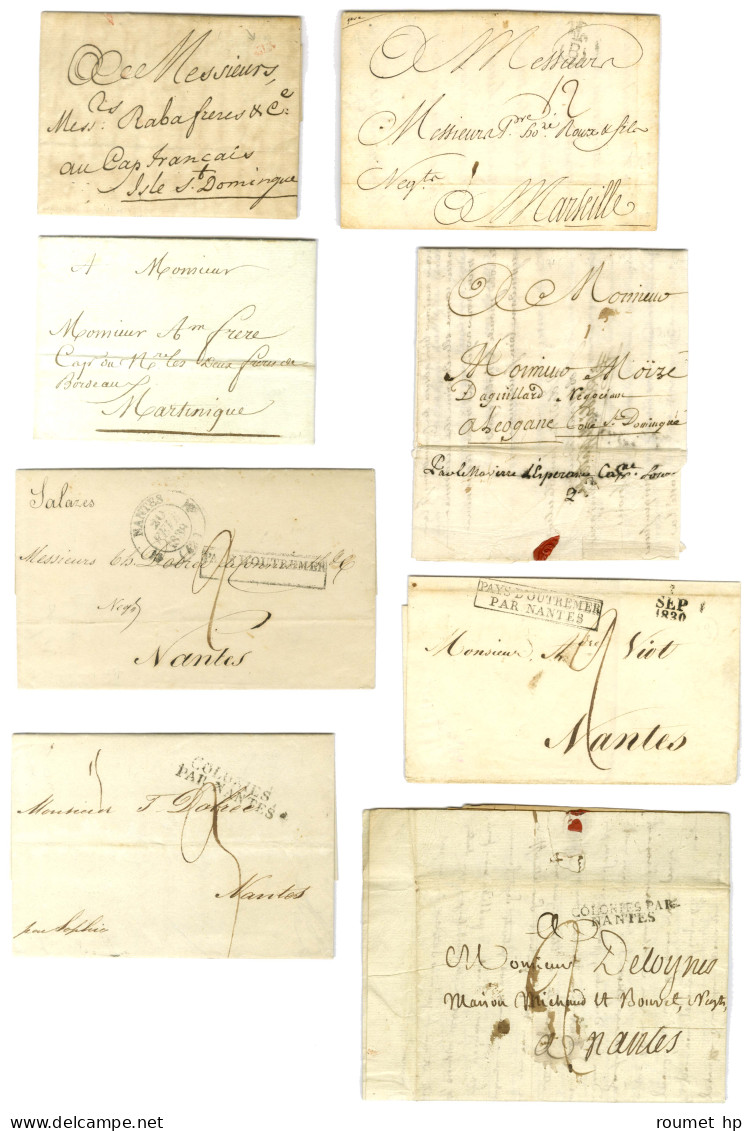 A Messieurs,
Mess.rs Raba freres & Ce
au Cap francais
Isle St Domingue
A Messieurs
12
Messieurs Pre honré Roux & fils
Negts
A Marseille
A Monsieur
Monsieur Am frere
Capne du Nre les deux freres de
Bordeaux
Martinique
A Monsieur
1
Monsieur Moïzé
Daguillard Negociant
a Leogane Coste St Domingue
Par le Navire l'Esperance Capne
Salazes
NANTES
PAYS D'OUTREMER
Messieurs
Negts
2
Nantes
PAYS D'OUTREMER
PAR NANTES
SEP
1830
Monsieur Viot
2
Nantes
COLONIES
PAR NANTES
Monsieur T. Dobrée
Nantes
par Sophie
COLONIES PAR
NANTES
A
Monsieur Deloynes
Maison Michaud et Bourel, Negts,
a nantes
roumet hp